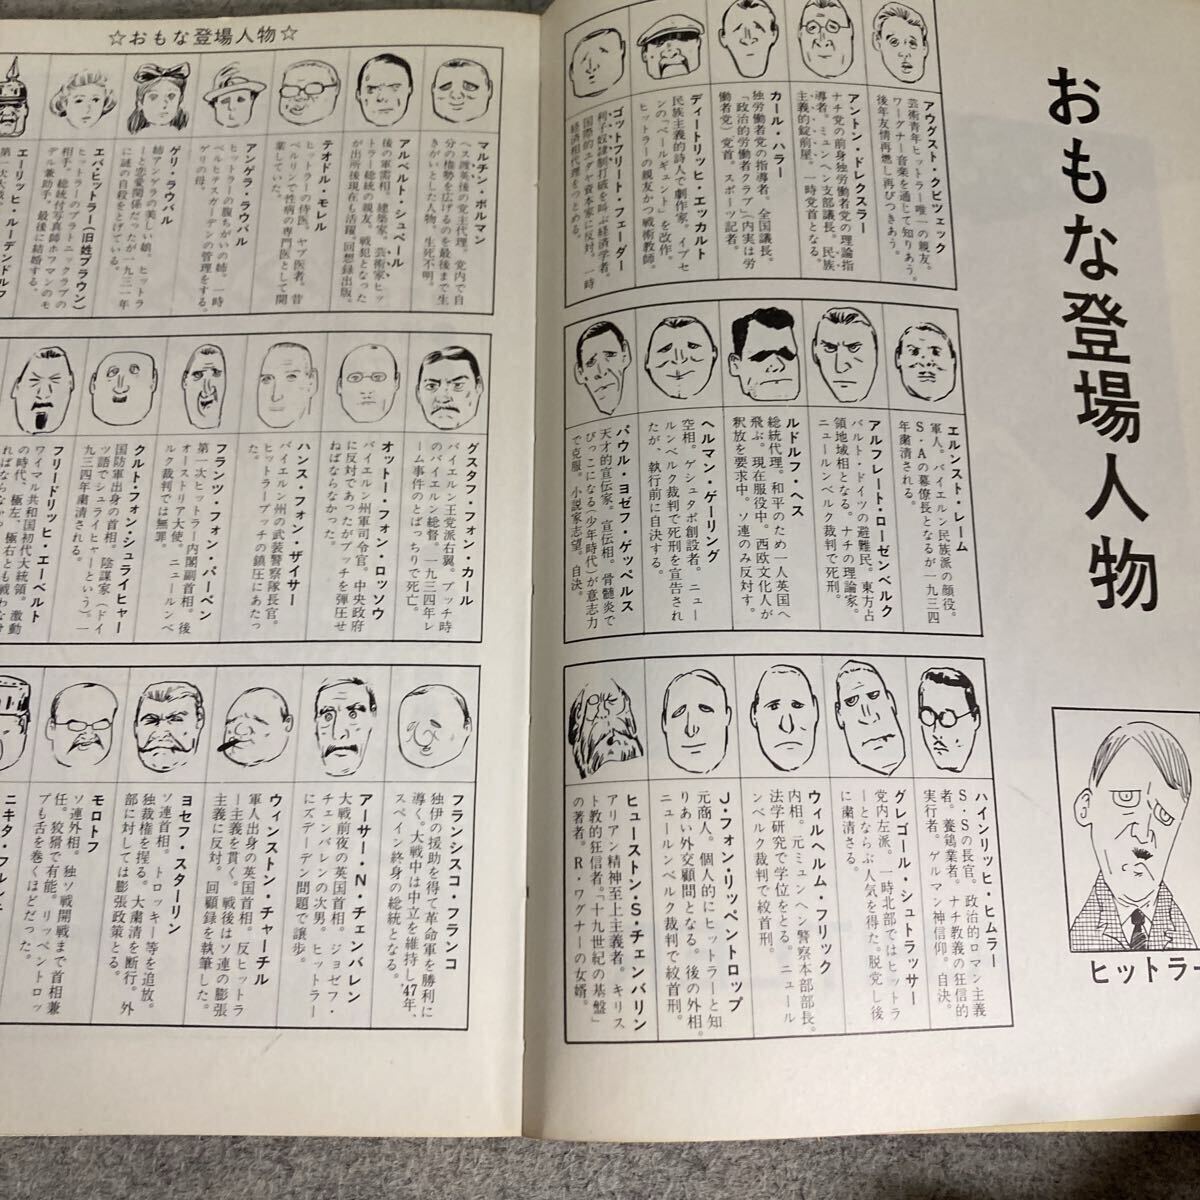 おもな登場人物
ヒットラー
アウグスト・クビツェック
芸術青年ヒットラー唯一の親友。
ワーグナー音楽を通じて知りあう。
後年友情再燃し再びつきあう。
アントン・ドレクスラー
ナチ党の前身独労働者党の理論・指
導者。ミュンヘン支部議長。民族
主義的錠前屋。一時党首となる。
カール・ハラー
独労働者党の指導者。全国議長。
「政治的労働者クラブ」（内実は労
働者党）党首。スポーツ記者。
ディートリッヒ・エッカルト
民族主義的詩人で劇作家。イプセ
ンの「ペールギュント」を改作。
ヒットラーの親友かつ戦術教師。
ゴットフリート・フェーダー
利子奴隷制打破を叫ぶ経済学者。
国際的ユダヤ資本家に反対。一時
経済相代理をつとめる。
エルンスト・レーム
軍人。バイエルン民族派の顔役。
S・Aの幕僚長となるが一九三四
年粛清される。
アルフレート・ローゼンベルク
バルト・ドイツの避難民。東方占
領地域相となる。ナチの理論家。
ニュールンベルク裁判で死刑。
ルドルフ・ヘス
総統代理。和平のため一人英国へ
飛ぶ。現在服役中。西欧文化人が
釈放を要求中。ソ連のみ反対す。
ヘルマン・ゲーリング
空相。ゲシュタポ創設者。ニュー
ルンベルク裁判で死刑を宣告され
たが、執行前に自決する。
パウル・ヨゼフ・ゲッベルス
天才的宣伝家。宣伝相。骨髄炎で
びっこになる（少年時代）が意志力
で克服。小説家志望。自決。
ハインリッヒ・ヒムラー
S・Sの長官。政治的ロマン主義
者。養鶏業者。ナチ教義の狂信的
実行者。ゲルマン神信仰。自決。
グレゴール・シュトラッサー
党内左派。一時北部ではヒットラ
ーとならぶ人気を得た。脱党し後
に粛清さる。
ウィルヘルム・フリック
内相。元ミュンヘン警察本部部長。
法学研究で学位をとる。ニュール
ンベルク裁判で絞首刑。
J・フォン・リッペントロップ
元商人。個人的にヒットラーと知
りあい外交顧問となる。後の外相。
ニュールンベルク裁判で絞首刑。
ヒューストン・S・チェンバリン
アリアン精神至上主義者。キリス
ト教的狂信者。「十九世紀の基盤」
の著者。R・ワグナーの女婿。
☆おもな登場人物☆
マルチン・ボルマン
ヘス渡英後の党主代理。党内で自
分の権勢を広げるのを最後まで生
きがいとした人物。生死不明。
アルベルト・シュペール
後の軍需相。建築家。芸術家ヒッ
トラー総統の親友。戦犯となった
が出所後現在も活躍。回想録出版。
テオドル・モレル
ヒットラーの侍医。ヤブ医者。昔
ベルリンで性病の専門医として開
業していた。
アンゲラ・ラウバル
ヒットラーの腹ちがいの姉。一時
ベルヒテスガーデンの管理をする。
ゲリの母。
ゲリ・ラウバル
姉アンゲラの美しい娘。ヒットラ
ーと恋愛関係だったが一九三一年
に謎の自殺をとげている。
エバ・ヒットラー（旧姓ブラウン）
ヒットラーのプラトニックラブの
相手。総統付写真師ホフマンのモ
デル兼助手。最後に結婚する。
エーリッヒ・ルーデンドルフ
グスタフ・フォン・カール
バイエルン王党派右翼。プッチ時
のバイエルン総督。一九三四年レ
ーム事件のとばっちりで死亡。
オットー・フォン・ロッソウ
バイエルン州軍司令官。中央政府
に反対であったがプッチを弾圧せ
ねばならなかった。
ハンス・フォン・ザイサー
バイエルン州の武装警察隊長官。
ヒットラープッチの鎮圧にあたっ
た。
フランツ・フォン・パーペン
第一次ヒットラー内閣副首相。後
オーストリア大使。ニュールンベ
ルク裁判では無罪。
クルト・フォン・シュライヒャー
国防軍出身の首相。陰謀家（ドイ
ツ語でシュライヒャーという）。一
九三四年粛清される。
フリードリッヒ・エーベルト
ワイマル共和国初代大統領。激動
の時代、極左、極右とも戦わなけ
ればならなかっ
フランシスコ・フランコ
独伊の援助を得て革命軍を勝利に
導く。大戦中は中立を維持し'47年、
スペイン終身の総統となる。
アーサー・N・チェンバレン
大戦前夜の英国首相。ジョゼフ・
チェンバレンの次男。ヒットラー
にズデーテン問題で譲歩。
ウィンストン・チャーチル
軍人出身の英国首相。反ヒットラ
ー主義を貫く。戦後はソ連の膨張
主義に反対。回顧録を執筆した。
ヨセフ・スターリン
ソ連首相。トロッキー等を追放。
独裁権を握る。大粛清を断行。外
部に対しては膨張政策とる。
モロトフ
ソ連外相。独ソ戦開戦まで首相兼
任。狡猾で有能。リッベントロッ
プも舌を巻くほどだった。